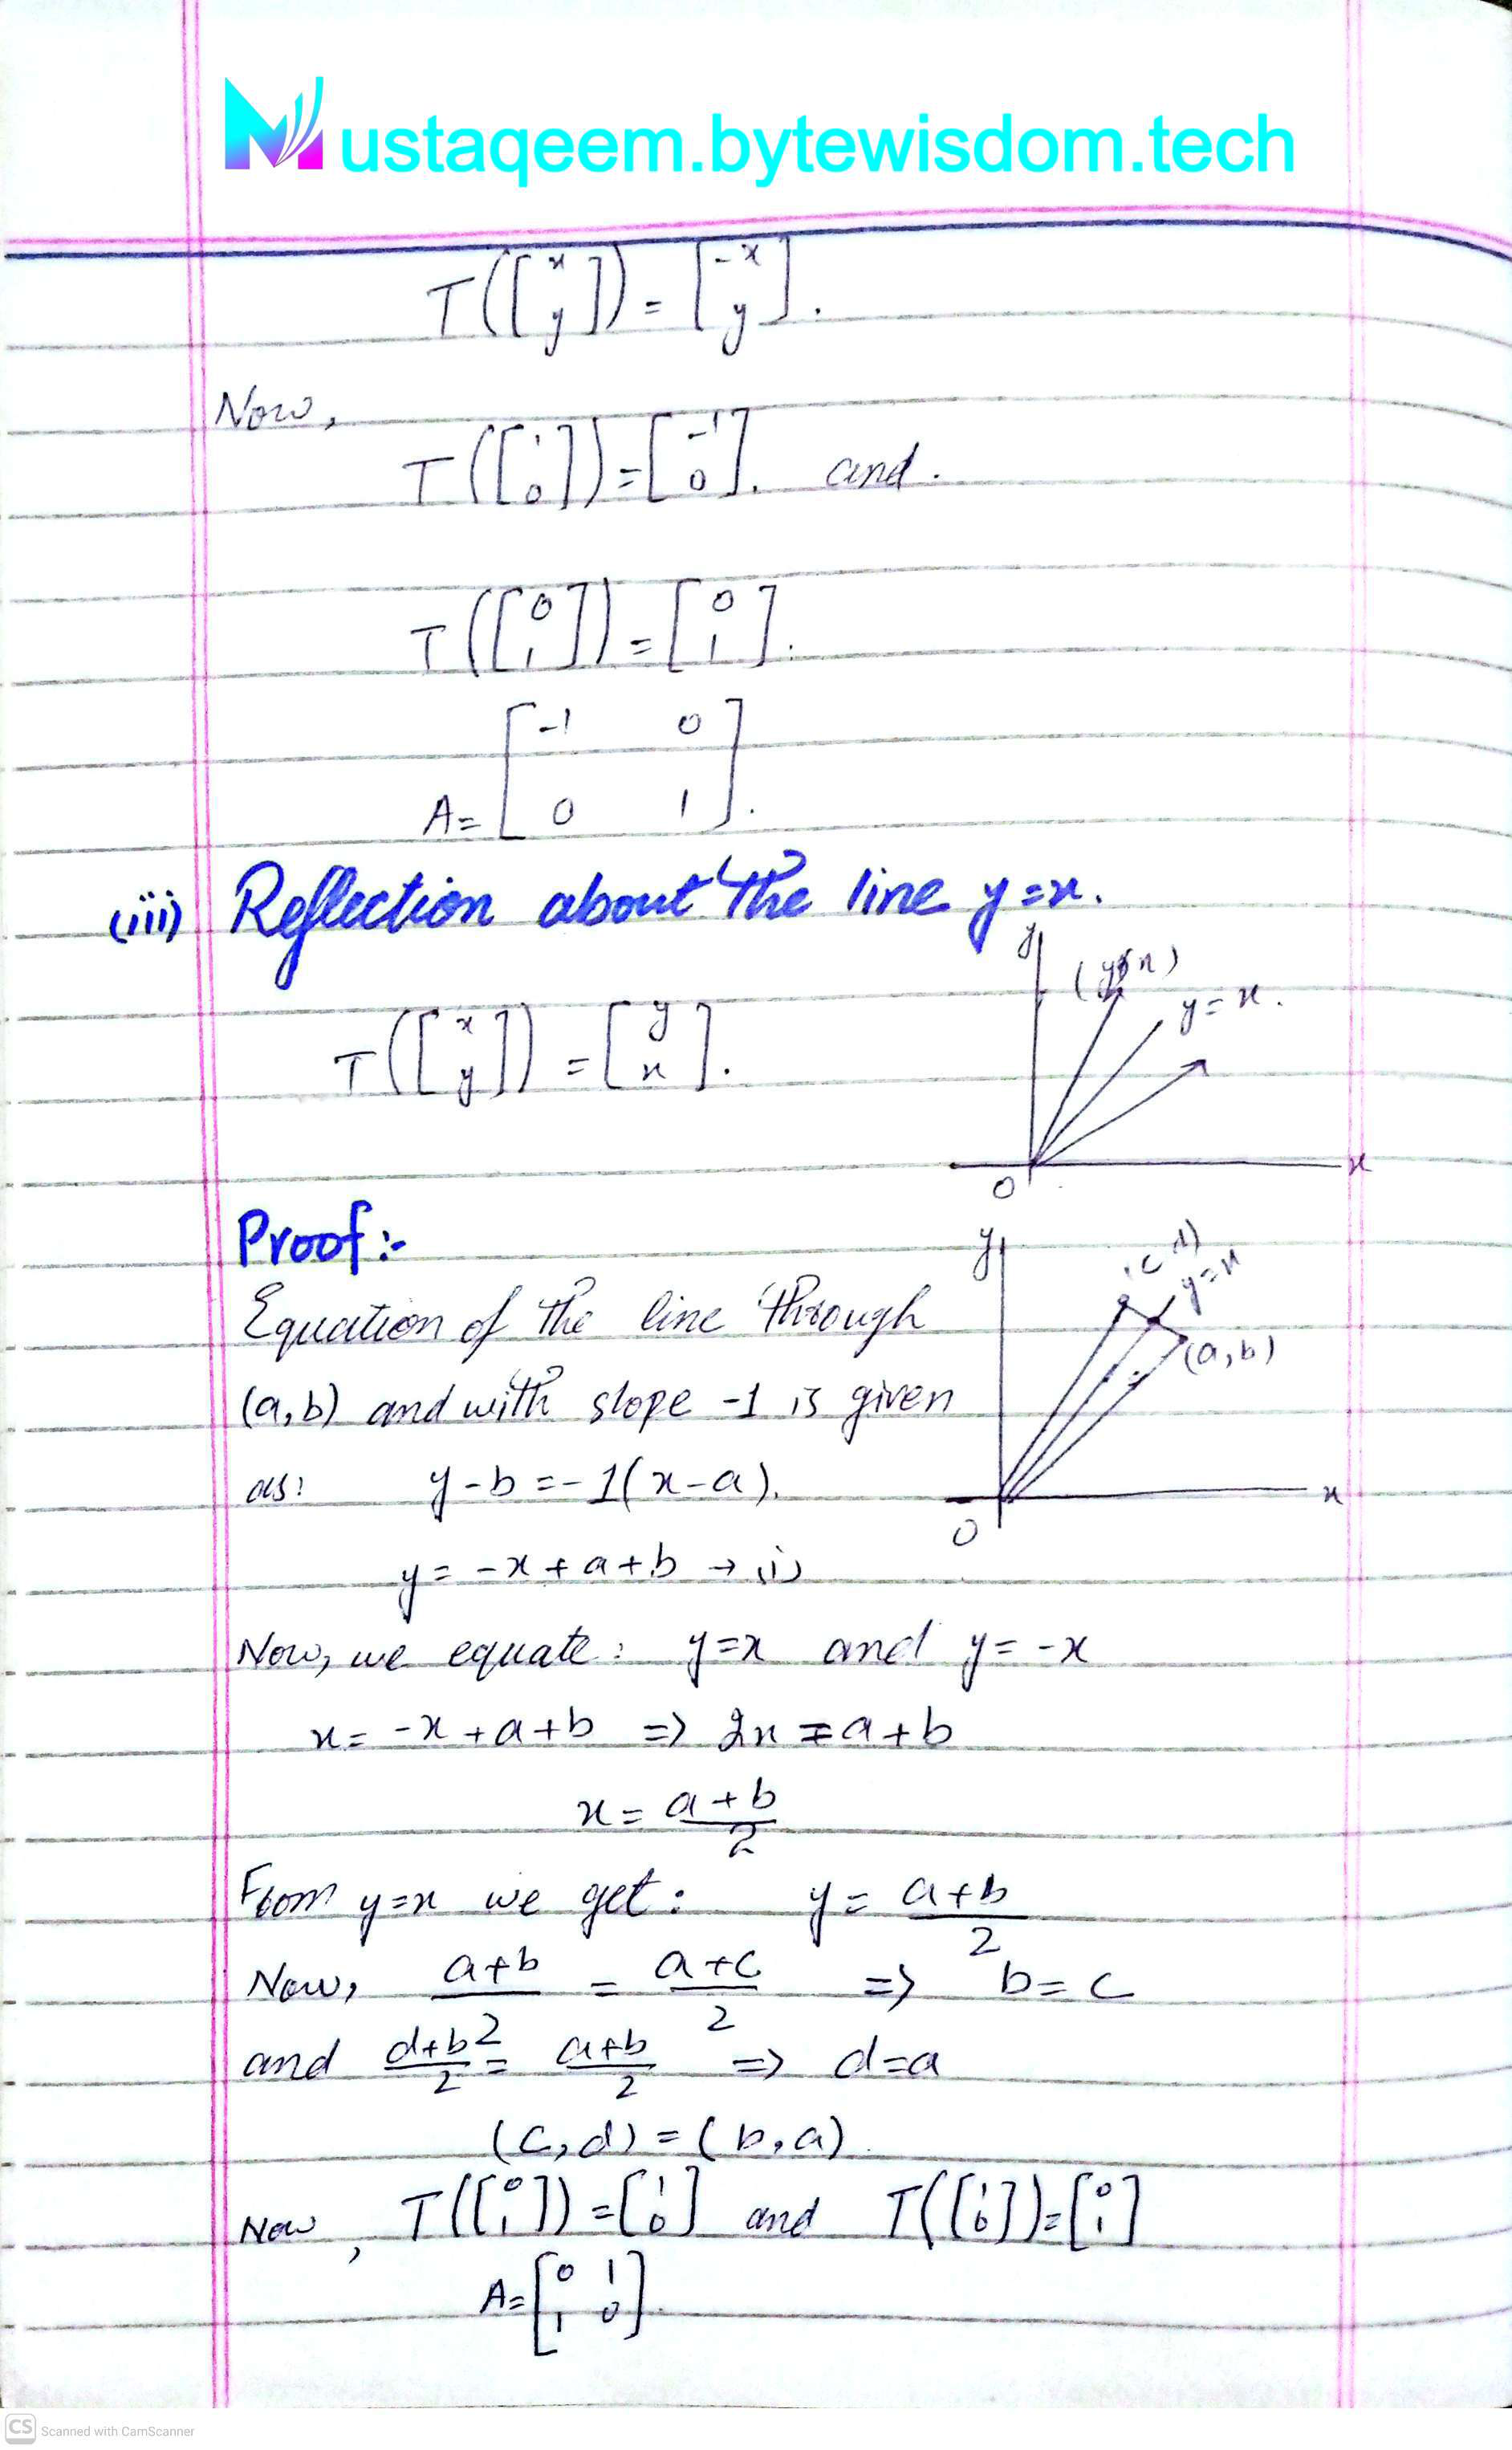 Mustaqeem.bytewisdom.tech
T([x y]) = [-x y].
Now,
T([1 0]) = [-1 0]. and.
T([0 1]) = [0 1].
A = [-1 0 0 1].
(iii) Reflection about the line y=x.
T([x y]) = [y x].
y
(y,x)
y=x.
x
O
Proof:-
Equation of the line through
(a,b) and with slope -1 is given
as: y-b=-1(x-a).
y=-x+a+b → (i)
y
y=x
(a,b)
x
O
Now, we equate: y=x and y=-x
x=-x+a+b => 2x=a+b
x=a+b/2
From y=x we get: y=a+b/2
Now, a+b/2 = a+c/2 => b=c
and d+b/2 = a+b/2 => d=a
(c,d)=(b,a).
Now, T([0 1])=[1 0] and T([1 0])=[0 1]
A=[0 1 1 0].
CS Scanned with CamScanner